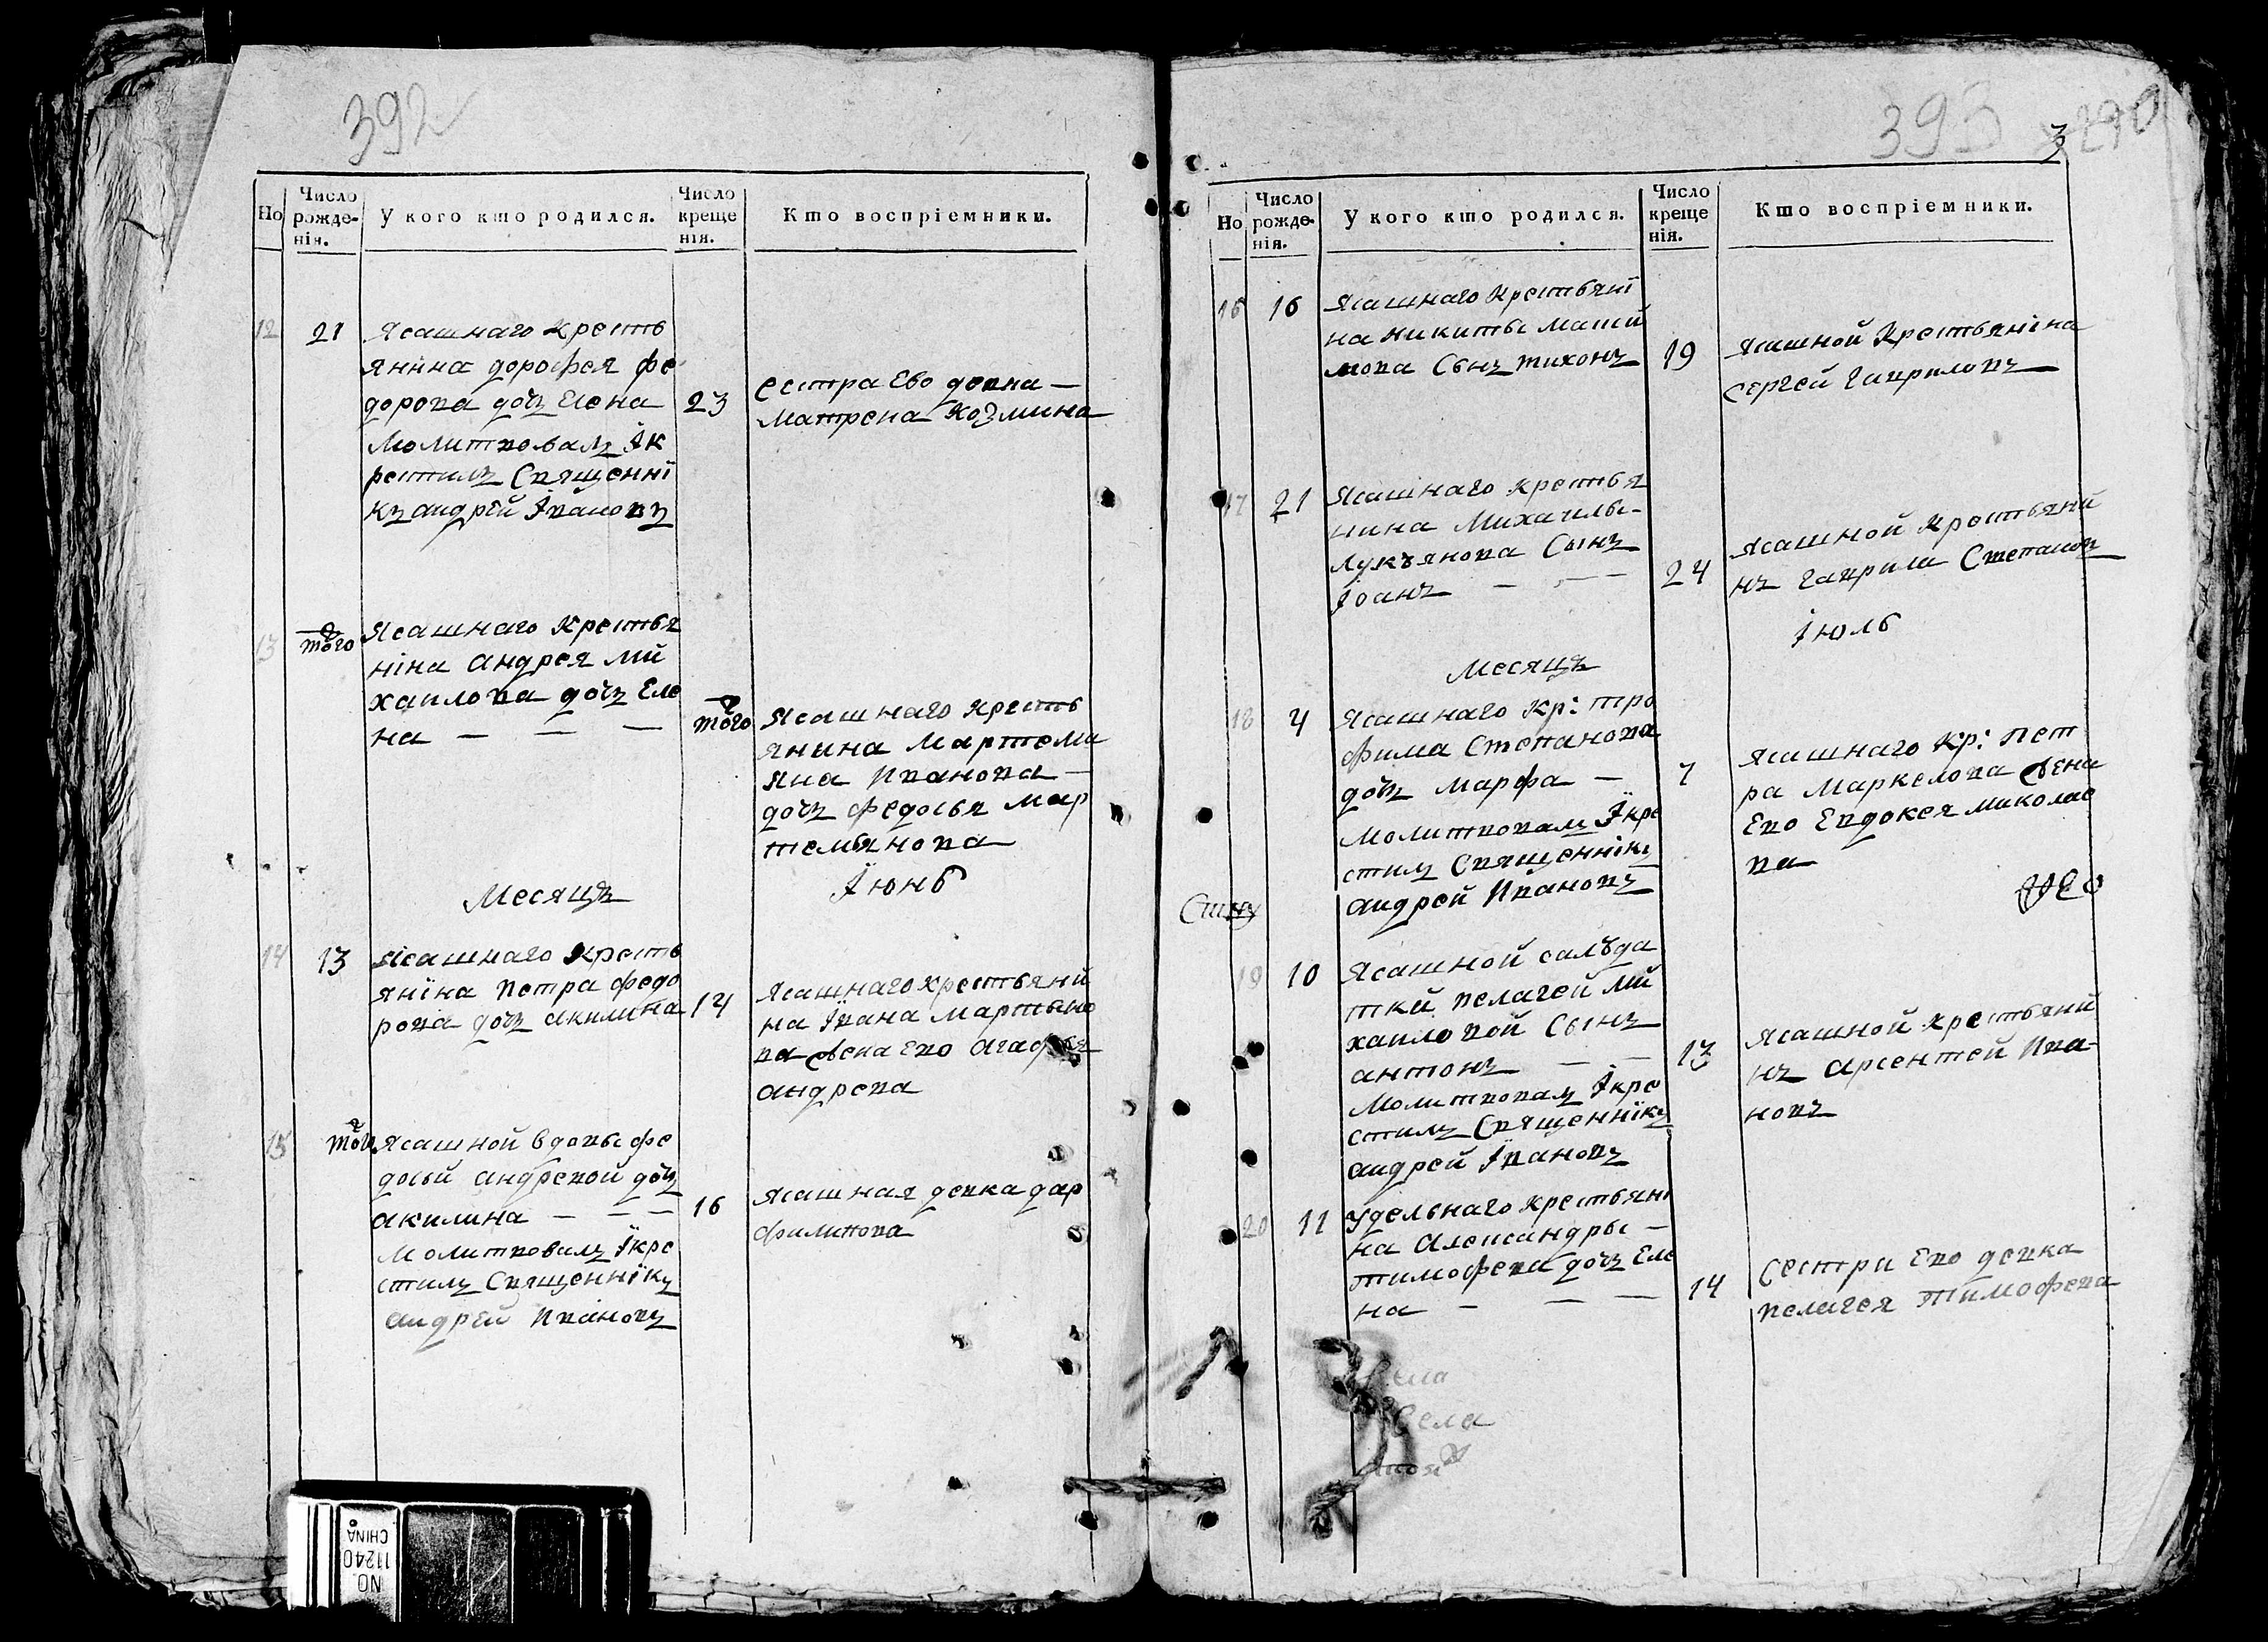 392
Но
Число рожде-нія.
У кого кто родился.
Число креще нія.
Кто воспріемники.
12
21
Ясашнаго кресть
яніна дорофея фе
дорова дочь Елена
молитвовалъ Ік
рестилъ Священні
къ андрей Івановъ
23
сестра Ево девка —
матрена козмина
13
того
Ясашнаго крестья
ніна андрея ми
хаилова дочь Еле
на — — —
того
Ясашнаго кресть
янина мартеми
яна Иванова —
дочь федосья мар
темьянова
Месяцъ
Іюнь
14
13
Ясашнаго кресть
яніна петра федо
рова дочь акилина
14
Ясашнаго крестьяни
на Івана мартыно
ва жена Ево агафья
андрева
15
того
Ясашной вдовы фе
досьи андревой дочь
акилина — — —
молитвовалъ Ікре
стилъ Священнікъ
андрей Ивановъ
16
Ясашная девка дар
филипова
393
3
290
Но
Число рожде-нія.
У кого кто родился.
Число креще нія.
Кто воспріемники.
16
16
Ясашнаго крестьяни
на никиты
Сынъ тихонъ
19
Ясашной крестьяніна
сергей гавриловъ
17
21
Ясашнаго крестья
нина михаилы-
лукъянова Сынъ
Іоанъ — — —
24
Ясашной крестьяни
нъ гаврила Степановъ
Месяцъ
Іюль
18
4
Ясашнаго кр: тро
фима Степанова
дочь марфа —
молитвовалъ Ікре
стилъ Священнікъ
андрей Ивановъ
7
Ясашнаго кр: пет
ра маркелова жена
Ево Евдокея миколае
ва
19
10
Ясашной салъда
тки пелагеи ми
хаиловой Сынъ
антонъ — —
молитвовалъ Ікре
стилъ Священнікъ
андрей Івановъ
13
Ясашной крестьяни
нъ арсентей Ива-
новъ
20
11
Удельнаго крестьяни
на александры —
тимофева дочь Еле
на — — —
14
Сестра Ево девка
пелагея тимофева
Села
NO.
11240
CHINA